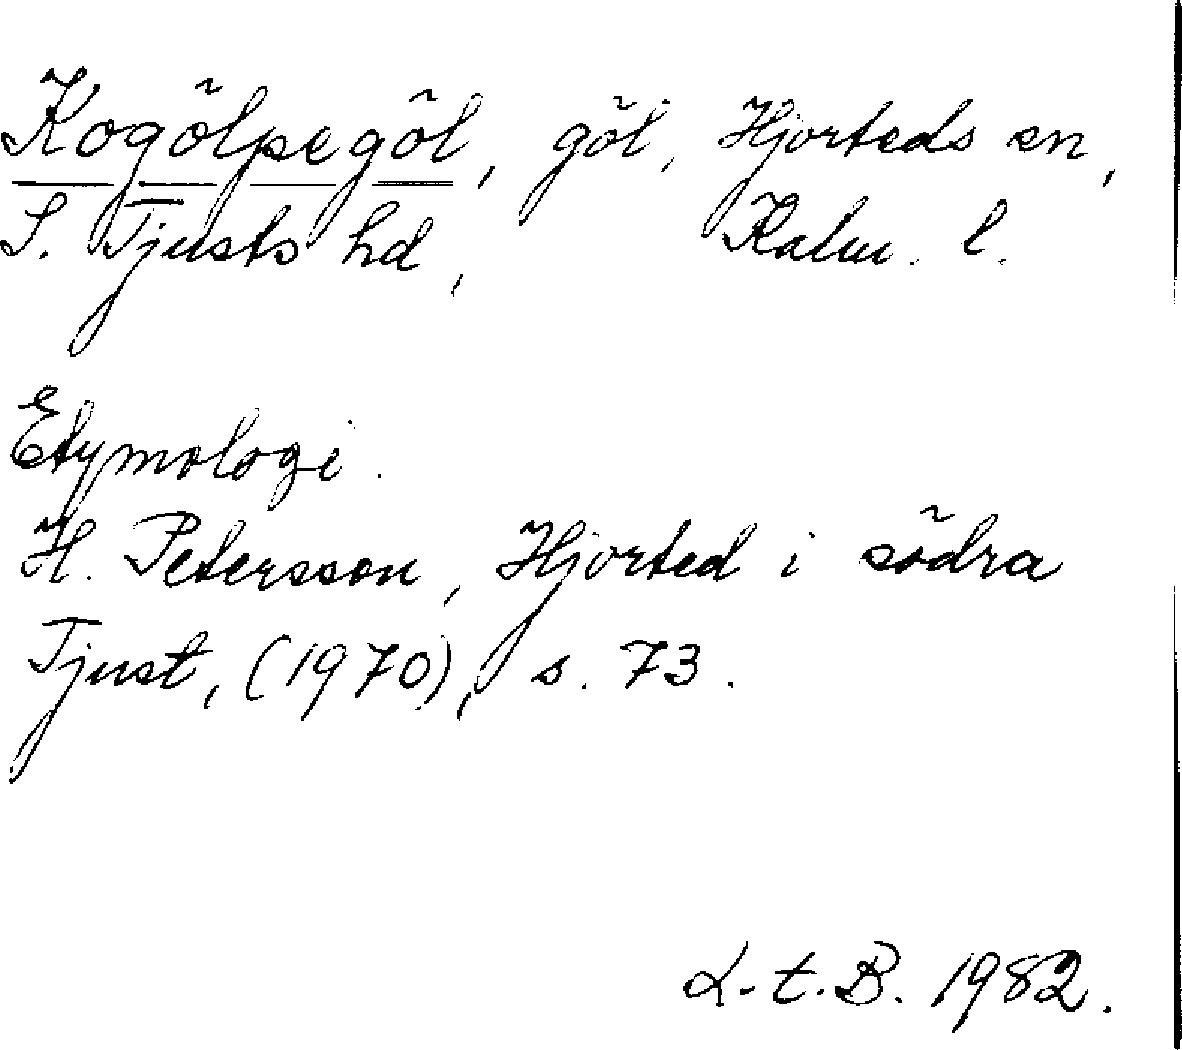 Kogölpegöl, göl, Hjorteds sn,
S. Tjusts hd, Kalm. l.
Etymologi.
H. Petersson, Hjorted i södra
Tjust, (1970), s. 73.
L.t.B. 1982.